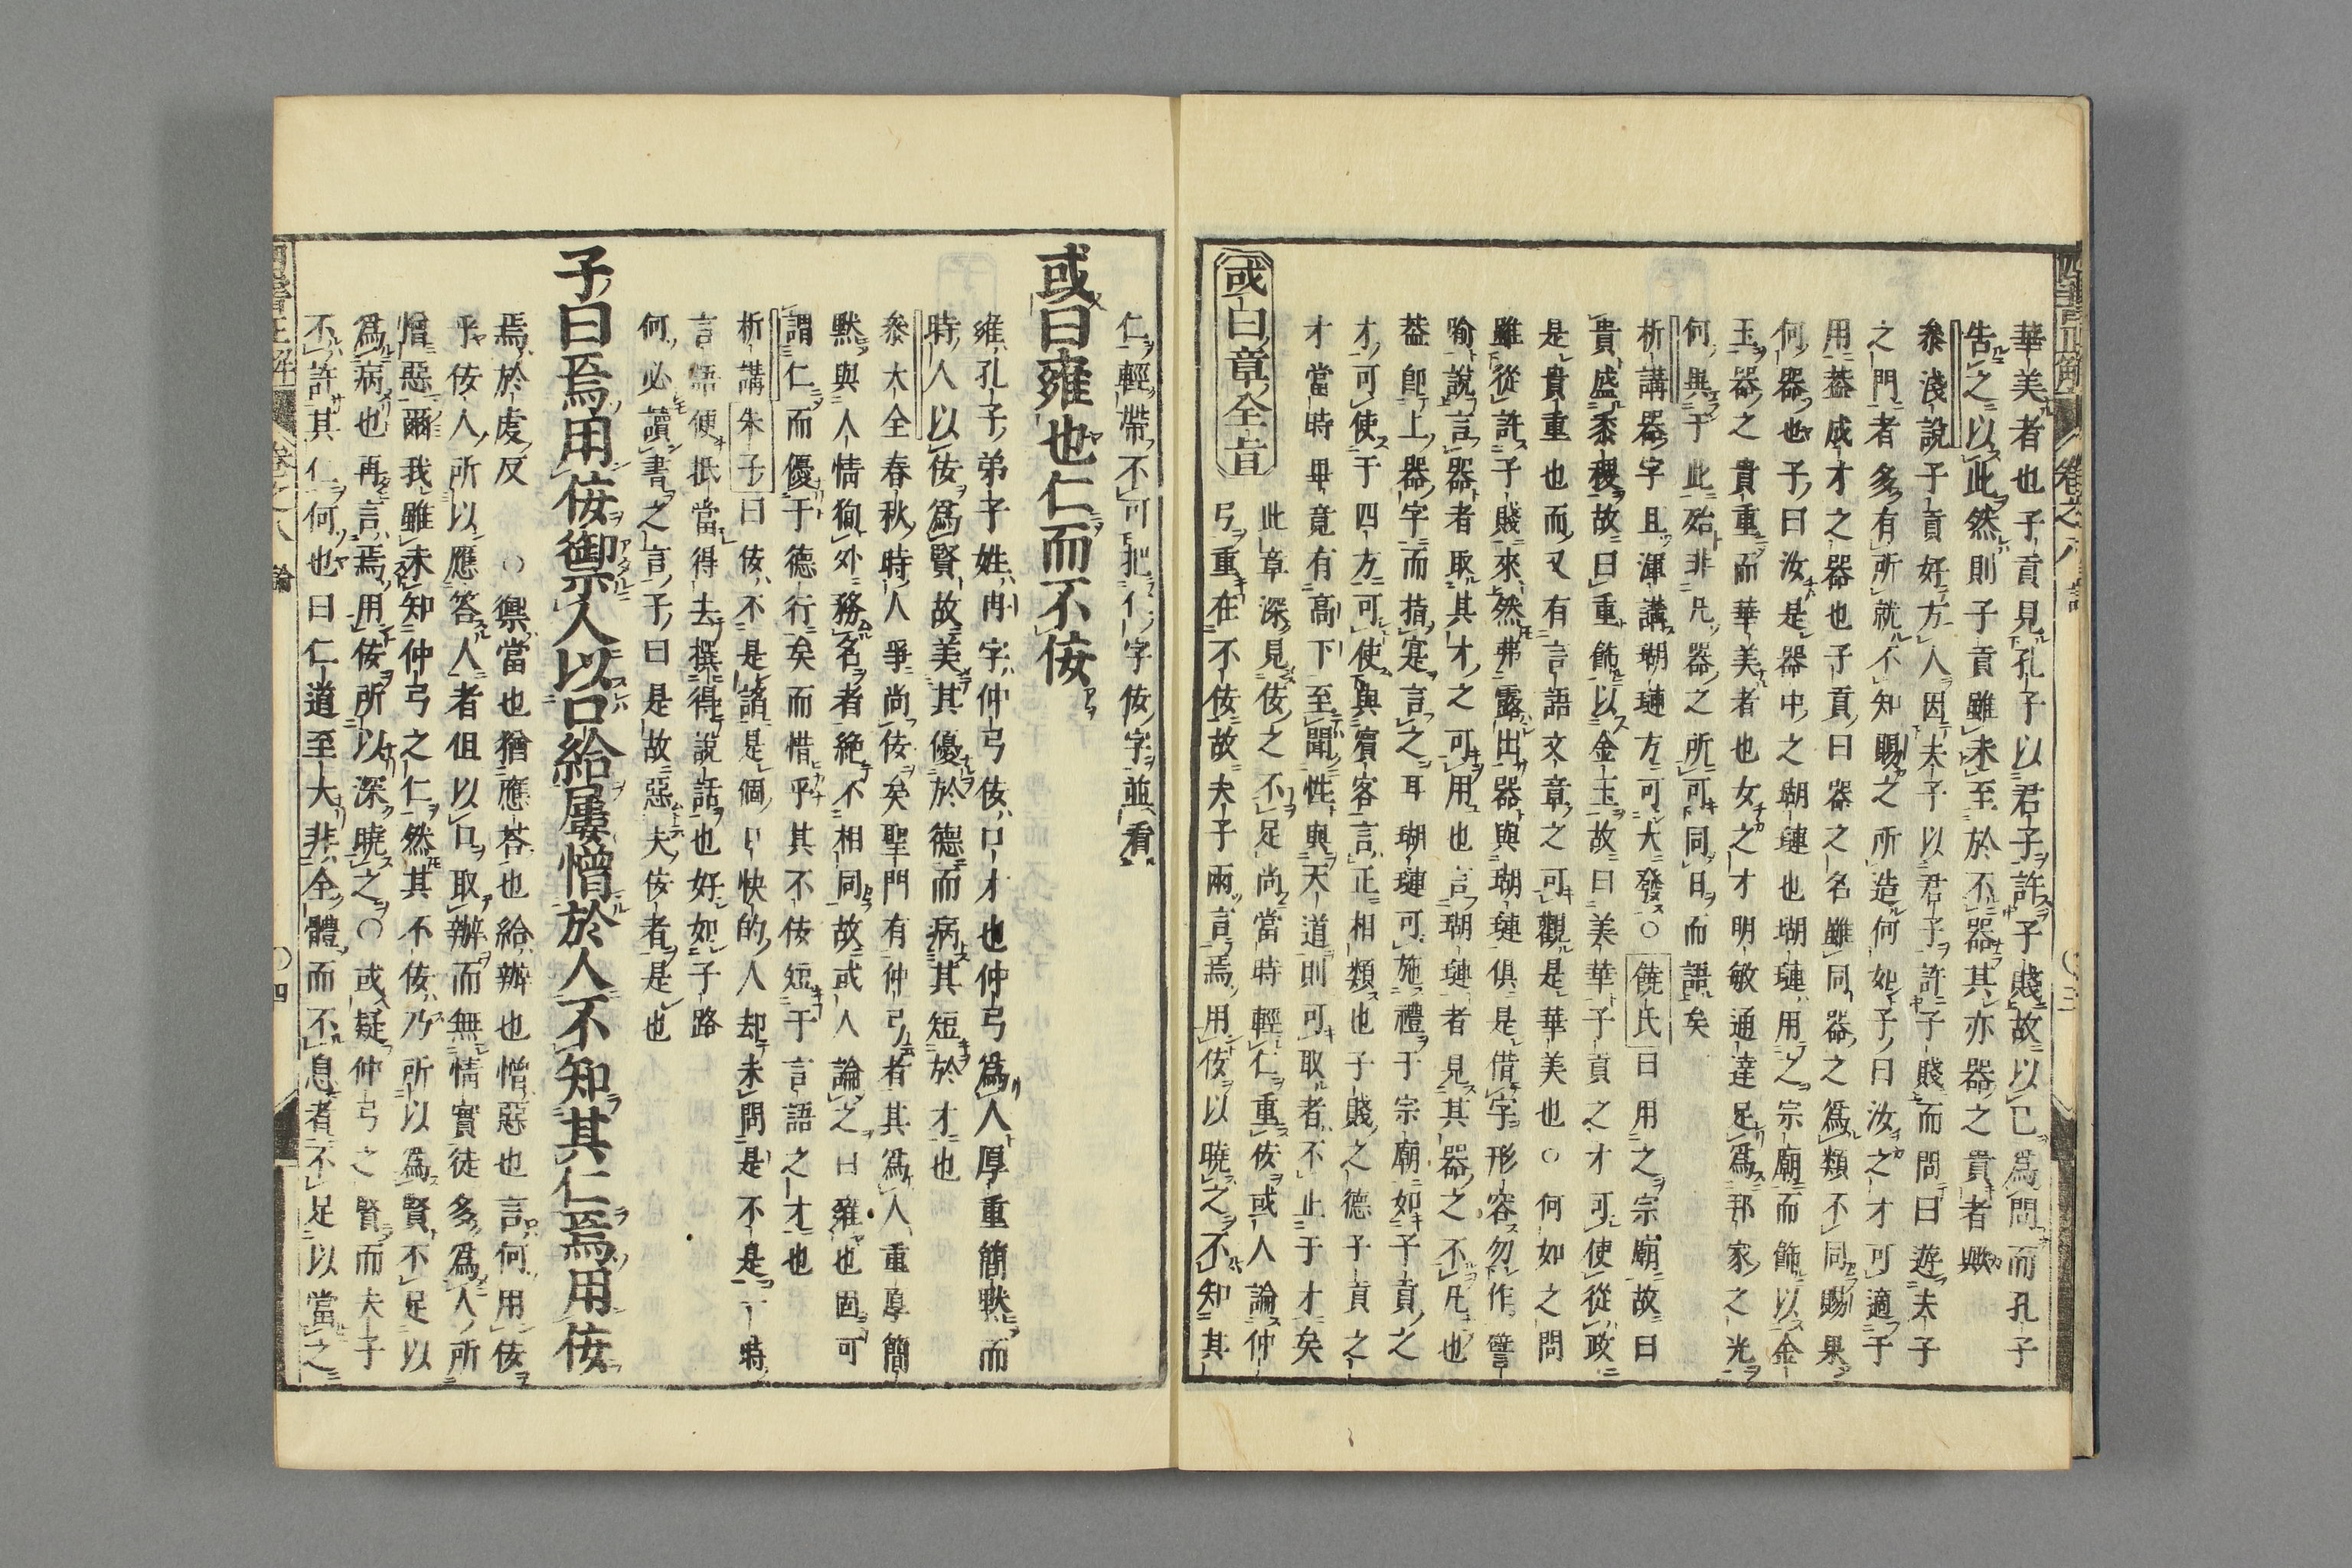 華美者也子貢見孔子以君子許子賤故以己爲問而孔子
告之以此然則子貢雖未至於不器其亦器之貴者歟
叅淺說子貢好方人因夫子以君子許子賤而問曰遊夫子
之門者多有所就不知賜之所造何如子曰汝之才可適于
用葢成才之器也子貢曰器之名雖同器之爲類不同賜果
何器也子曰汝是器中之瑚璉也瑚璉用之宗廟而飾以金
玉器之貴重而華美者也女之才明敏通達足爲邦家之光
何與于此殆非凡器之所可同日而語矣
析講器字且渾講瑚璉方可大發○饒氏曰用之宗廟故曰
貴盛黍稷故曰重飾以金玉故曰美華子貢之才可使從政
是貴重也而又有言語文章之可觀是華美也○何如之問
雖從許子賤來然弗露出器與瑚璉俱是借字形容勿作譬
喻說言器者取其才之可用也言瑚璉者見其器之不凡也
葢卽上器字而指寔言之耳瑚璉可施禮于宗廟如子貢之
才可使于四方可使與賓客言正相類也子賤之德子貢之
才當時畢竟有高下至聞性與天道則可取者不止于才矣
或曰章全旨
此章深見佞之不足尚當時輕仁重佞或人論仲
弓重在不佞故夫子兩言焉用佞以曉之不知其
四書正解
卷之八
論
○三
仁輕帶不可把仁字佞字並看
或曰雍也仁而不佞
雍孔子弟子姓冉字仲弓佞口才也仲弓爲人厚重簡默而
時人以佞爲賢故美其優於德而病其短於才也
叅大全春秋時人爭尚佞矣聖門有仲弓者其爲人重厚簡
默與人情狥外務名者絶不相同故或人論之曰雍也固可
謂仁而優于德行矣而惜乎其不佞短于言語之才也
析講朱子曰佞不是諂是個口快的人却未問是不是一時
言語便抵當得去撰得說話也好如子路
何必讀書之言子曰是故惡夫佞者是也
子曰焉用佞禦人以口給屢憎於人不知其仁焉用佞
焉於虔反○禦當也猶應荅也給辦也憎惡也言何用佞
乎佞人所以應答人者但以口取辦而無情實徒多爲人所
憎惡爾我雖未知仲弓之仁然其不佞乃所以爲賢不足以
爲病也再言焉用佞所以深曉之○或疑仲弓之賢而夫子
不許其仁何也曰仁道至大非全體而不息者不足以當之
四書正解
卷之八
論
○四